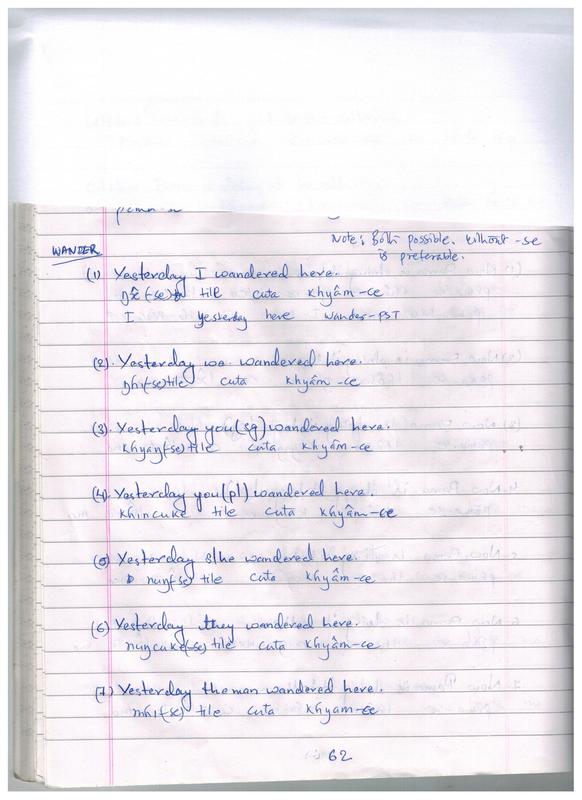 Note: Both possible. without -se
is preferable.
WANDER
(1) Yesterday I wandered here.
ŋʌ̂(-se) tile cuta khyâm-ce
I yesterday here wander-PST
(2). Yesterday we wandered here.
ŋhi(-se) tile cuta khyâm-ce
(3). Yesterday you(sg) wandered here.
khyaŋ(-se) tile cuta khyâm-ce
(4). Yesterday you(pl) wandered here.
khincuke tile cuta khyâm-ce
(5) Yesterday s/he wandered here.
nuŋ(-se) tile cuta khyâm-ce
(6) Yesterday they wandered here.
nuŋcuke(-se) tile cuta khyâm-ce
(7) Yesterday the man wandered here.
mhi(-se) tile cuta khyam-ce
62